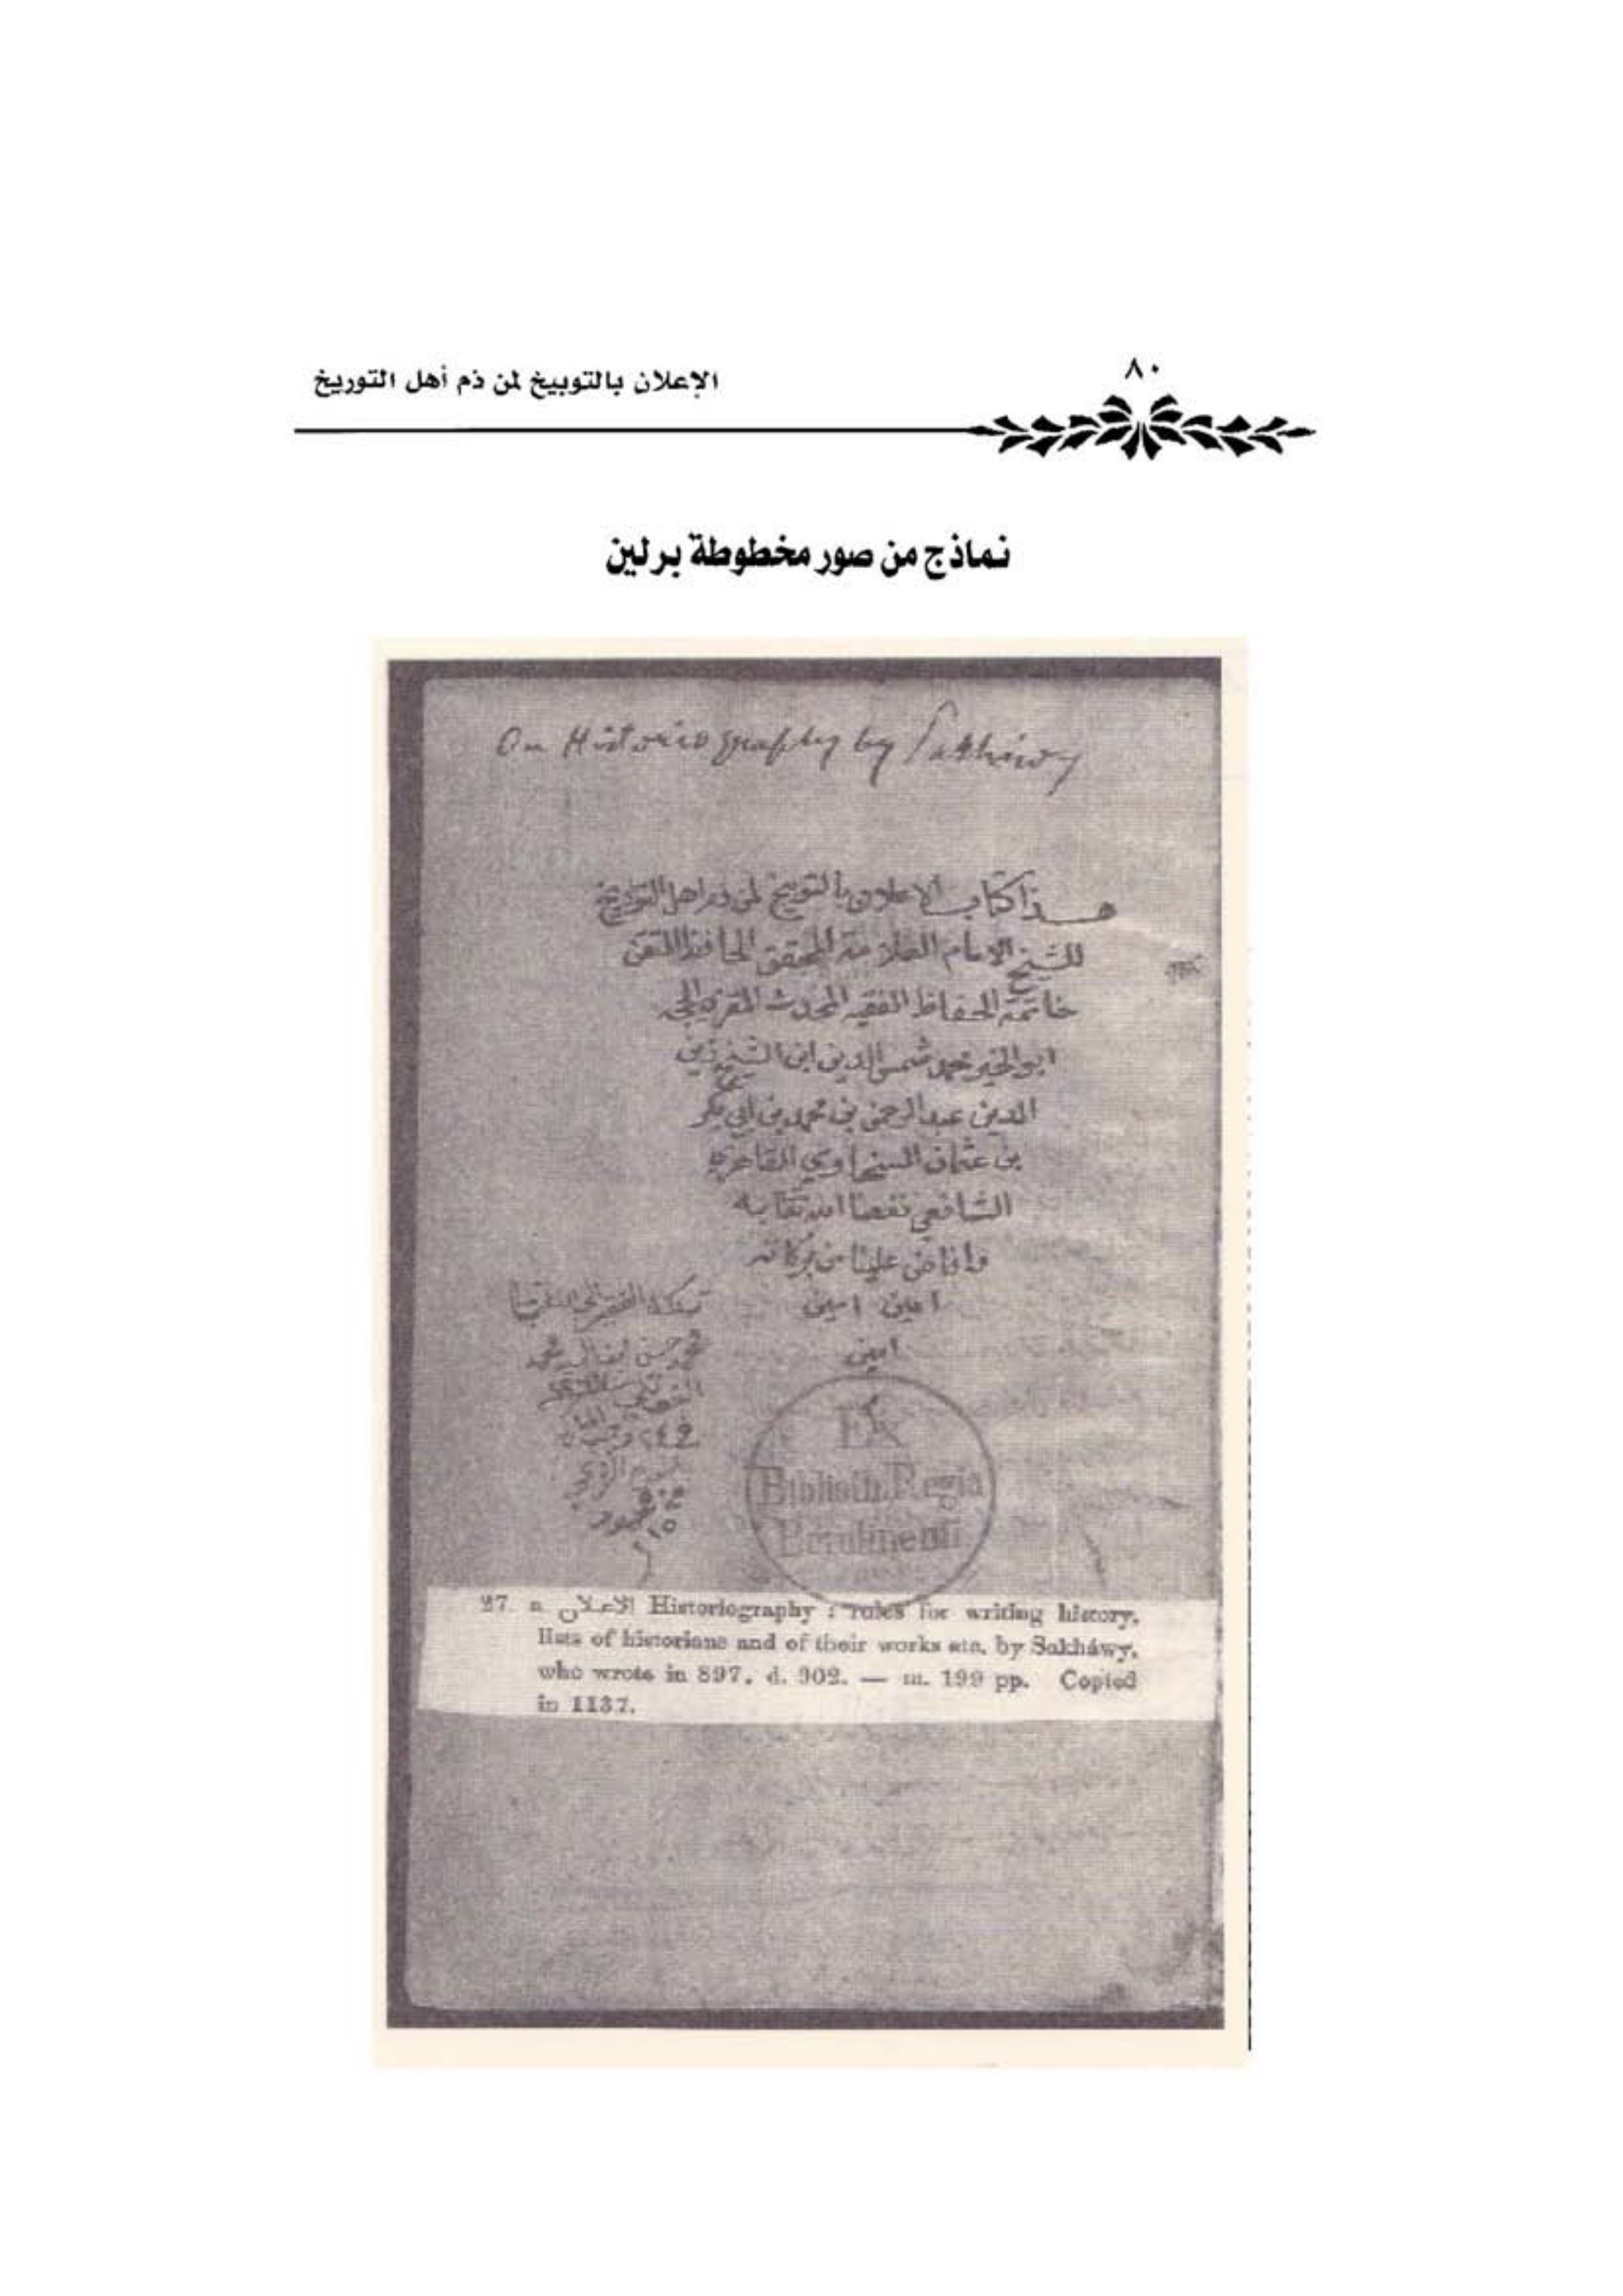 ٨٠
الإعلان بالتوبيخ لمن ذم أهل التوريخ
نماذج من صور مخطوطة برلين
On Historiography by Sakháwy
هذا كتاب الاعلان بالتوبيخ لمن ذم اهل التواريخ
للشيخ الامام العلامة المحقق الحافظ المتقن
خاتمة الحفاظ الفقيه المحدث المقري
ابو الخير محمد شمس الدين ابن الشيخ زين
الدين عبد الرحمن بن محمد بن ابي بكر
بن عثمان السخاوي القاهري
الشافعي نفعنا الله تعا به
وافاض علينا من بركاته
امين امين
امين
Ex
Biblioth. Regia
Berolinensi.
27. a الاعلان Historiography : rules for writing history,
lists of historians and of their works etc. by Sakháwy,
who wrote in 897. d. 902. — m. 199 pp. Copied
in 1137.